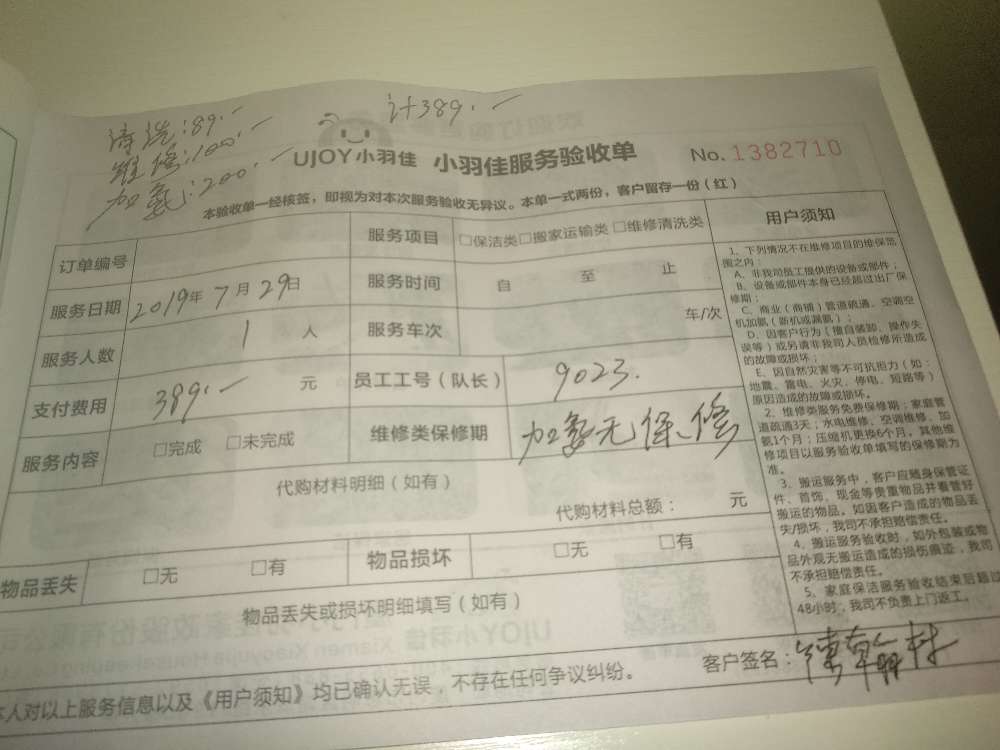 清洗:89.-
维修:100.-
加氨:200.-
计389.-
UJOY小羽佳 小羽佳服务验收单
No.1382710
本验收单一经核签，即视为对本次服务验收无异议。本单一式两份，客户留存一份（红）
订单编号
服务项目 □保洁类□搬家运输类 □维修清洗类
服务日期 2019年7月29日
服务时间 自 至 止
服务人数 1 人
服务车次 车/次
支付费用 389.- 元
员工工号（队长） 9023.
服务内容 □完成 □未完成
维修类保修期 加氨无保修
代购材料明细（如有）
代购材料总额： 元
物品丢失 □无 □有
物品损坏 □无 □有
物品丢失或损坏明细填写（如有）
用户须知
1、下列情况不在维修项目的维保范
围之内：
A、非我司员工提供的设备或部件；
B、设备或部件本身已经超过出厂保
修期；
C、商业（商铺）管道疏通、空调空
机加氨（新机或漏氨）；
D、因客户行为（擅自装卸、操作失
误等）或另请非我司人员检修所造成
的故障或损坏；
E、因自然灾害等不可抗担力（如：
地震、雷电、火灾、停电、短路等）
原因造成的故障或损坏。
2、维修类服务免费保修期：家庭管
道疏通3天；水电维修、空调维修、加
氨1个月；压缩机更换6个月。其他维
修项目以服务验收单填写的保修期为
准。
3、搬运服务中，客户应随身保管证
件、首饰、现金等贵重物品并看管好
搬运的物品。如因客户造成的物品丢
失/损坏，我司不承担赔偿责任。
4、搬运服务验收时，如外包装或物
品外观无搬运造成的损伤痕迹，我司
不承担赔偿责任。
5、家庭保洁服务验收结束后超过
48小时，我司不负责上门返工。
本人对以上服务信息以及《用户须知》均已确认无误，不存在任何争议纠纷。
客户签名：